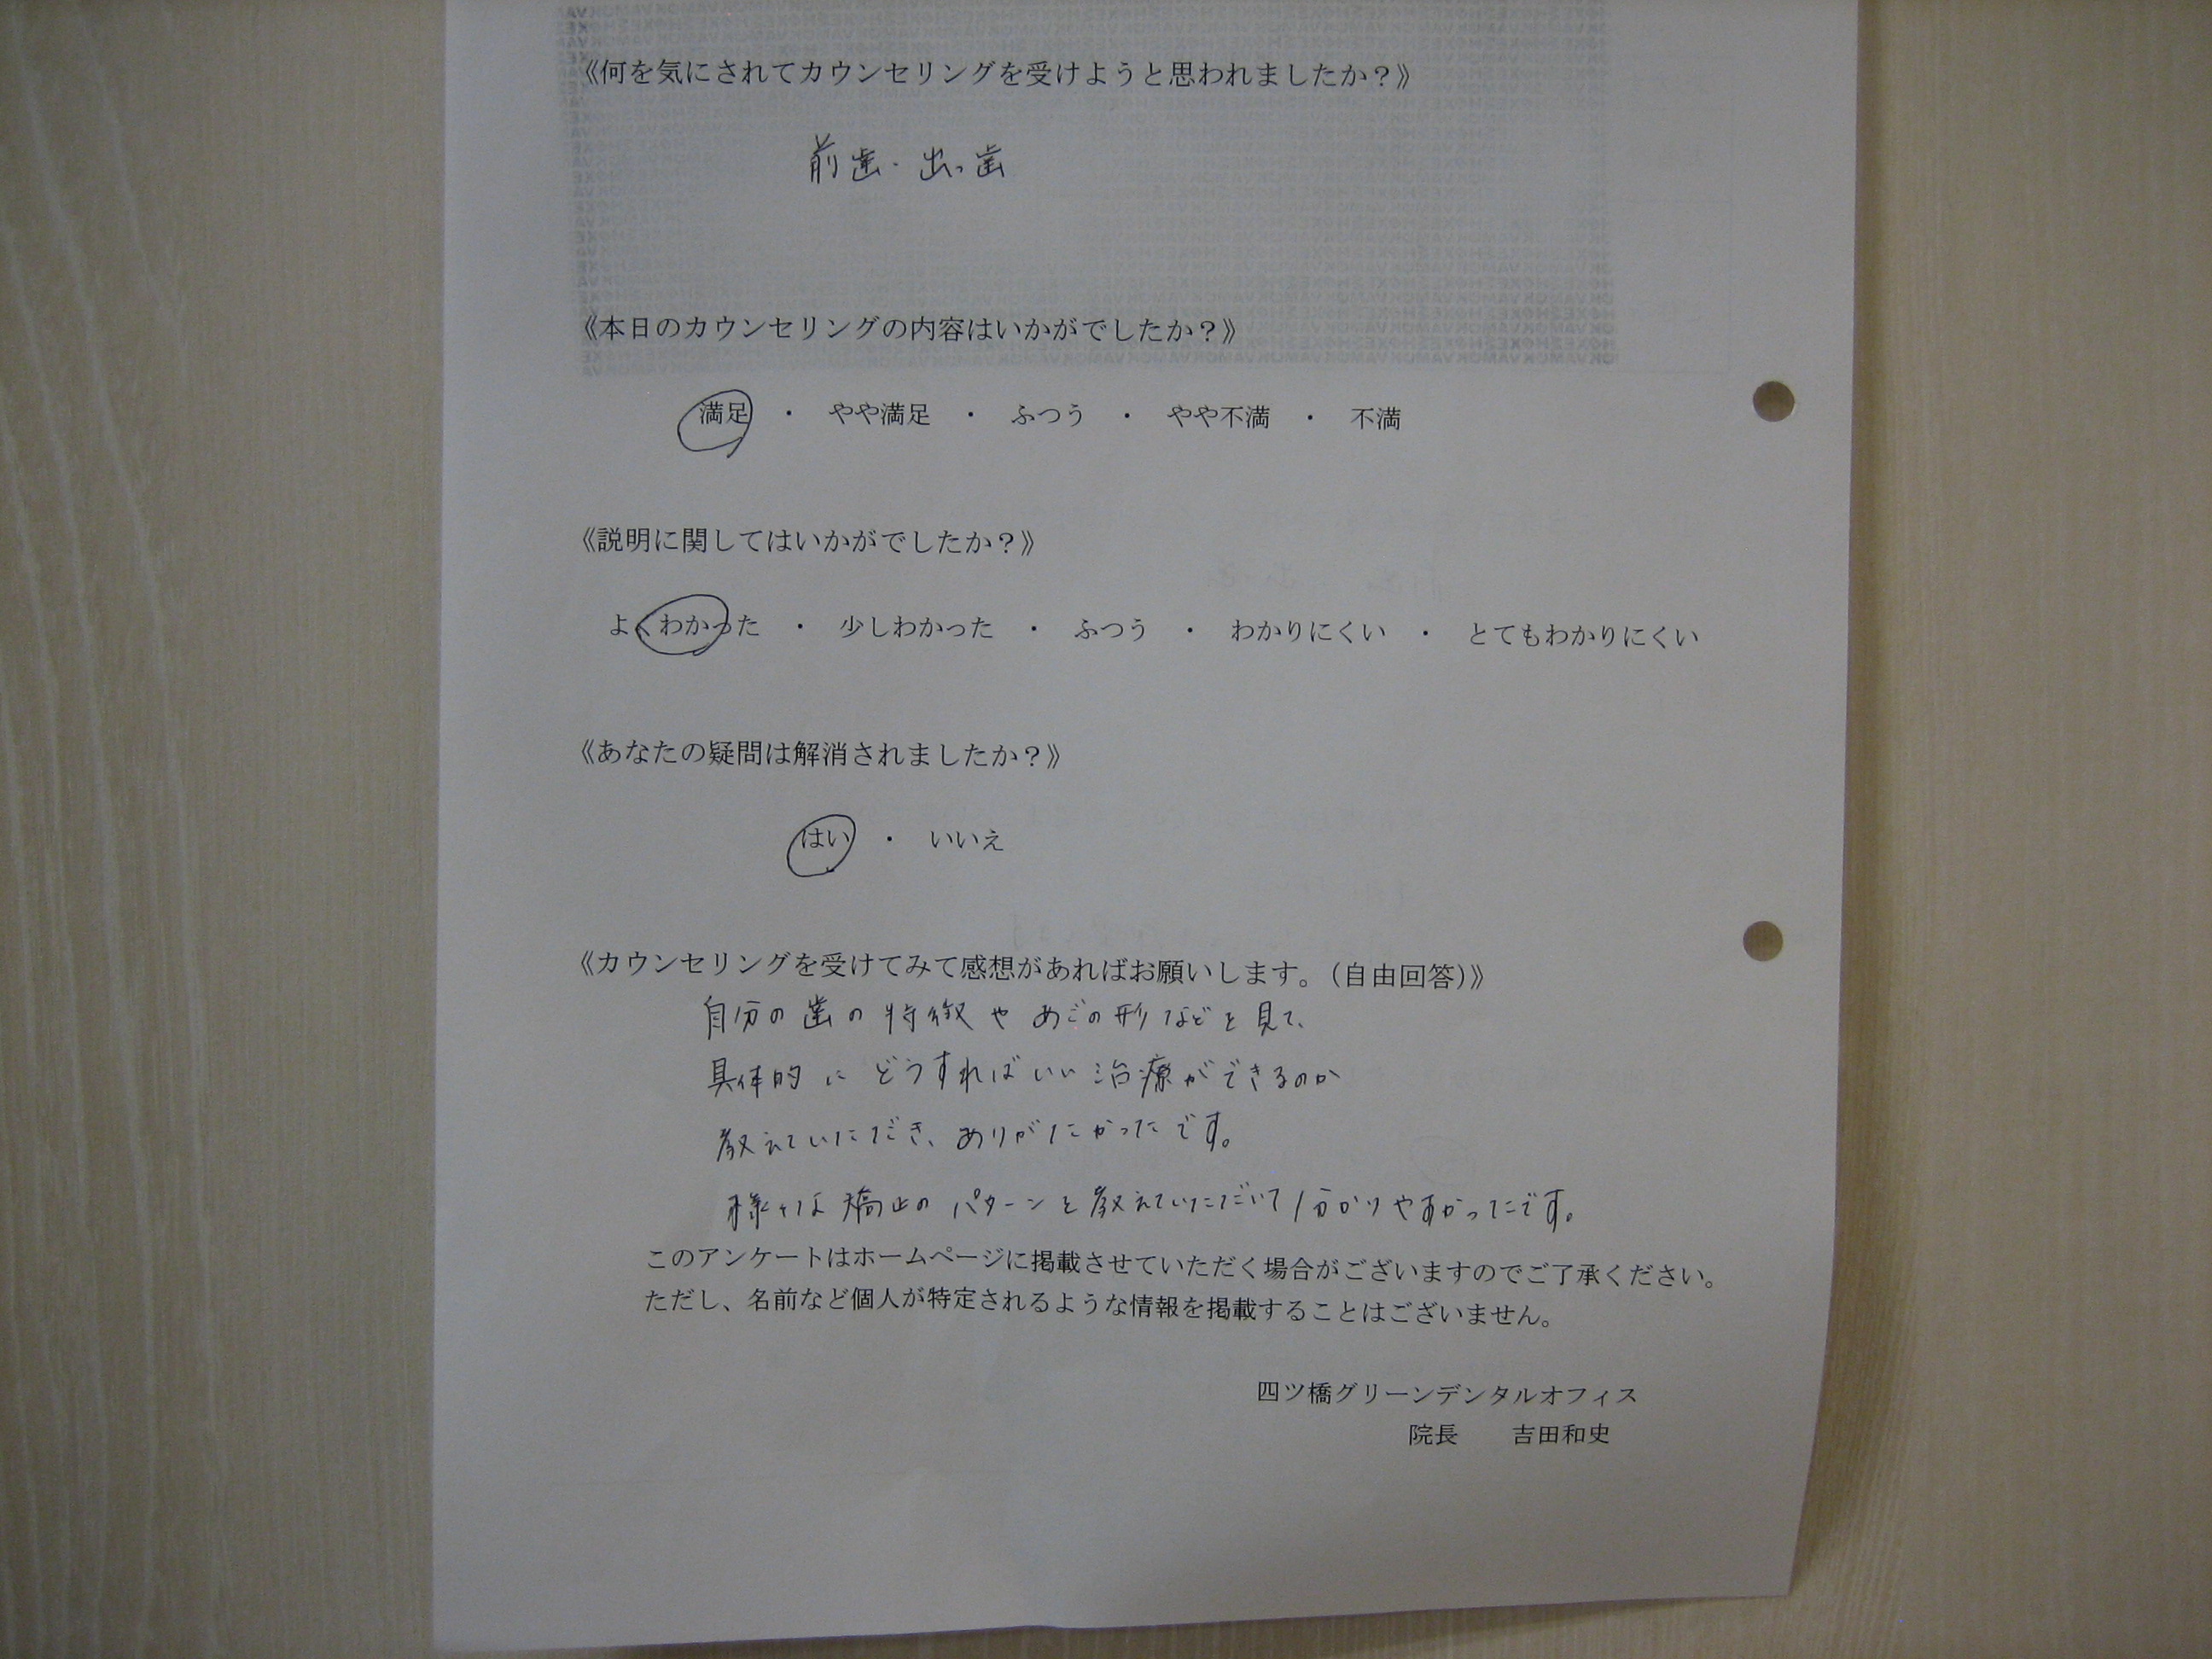 《何を気にされてカウンセリングを受けようと思われましたか？》
前歯・出っ歯
《本日のカウンセリングの内容はいかがでしたか？》
満足　・　やや満足　・　ふつう　・　やや不満　・　不満
《説明に関してはいかがでしたか？》
よくわかった　・　少しわかった　・　ふつう　・　わかりにくい　・　とてもわかりにくい
《あなたの疑問は解消されましたか？》
はい　・　いいえ
《カウンセリングを受けてみて感想があればお願いします。（自由回答）》
自分の歯の特徴やあごの形などを見て、
具体的にどうすればいい治療ができるのか
教えていただき、ありがたかったです。
様々な矯正のパターンを教えていただいて分かりやすかったです。
このアンケートはホームページに掲載させていただく場合がございますのでご了承ください。
ただし、名前など個人が特定されるような情報を掲載することはございません。
四ツ橋グリーンデンタルオフィス
院長　　吉田和史